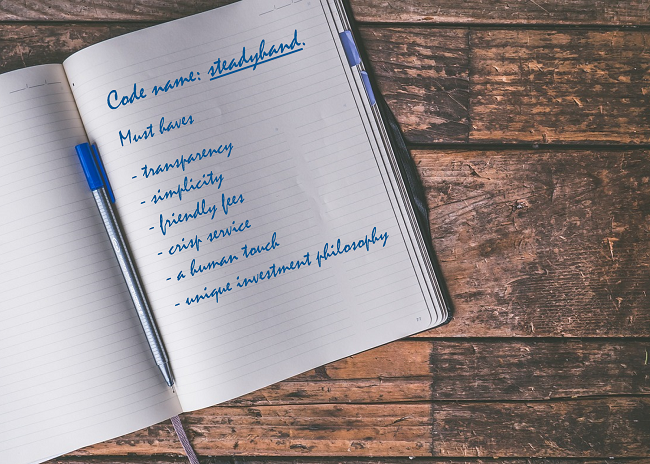 Code name: steadyhand.
Must haves
- transparency
- simplicity
- friendly fees
- crisp service
- a human touch
- unique investment philosophy